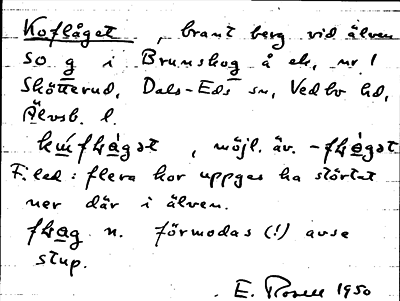 Koflåget, brant berg vid älven
SO g i Brunskog å ek. nr 1
Skötterud, Dals-Eds sn, Vedbo hd,
Älvsb. l.
, möjl. äv.
F. led: flera kor uppges ha störtat
ner där i älven.
n. förmodas (!) avse
stup.
E. Rosell 1950